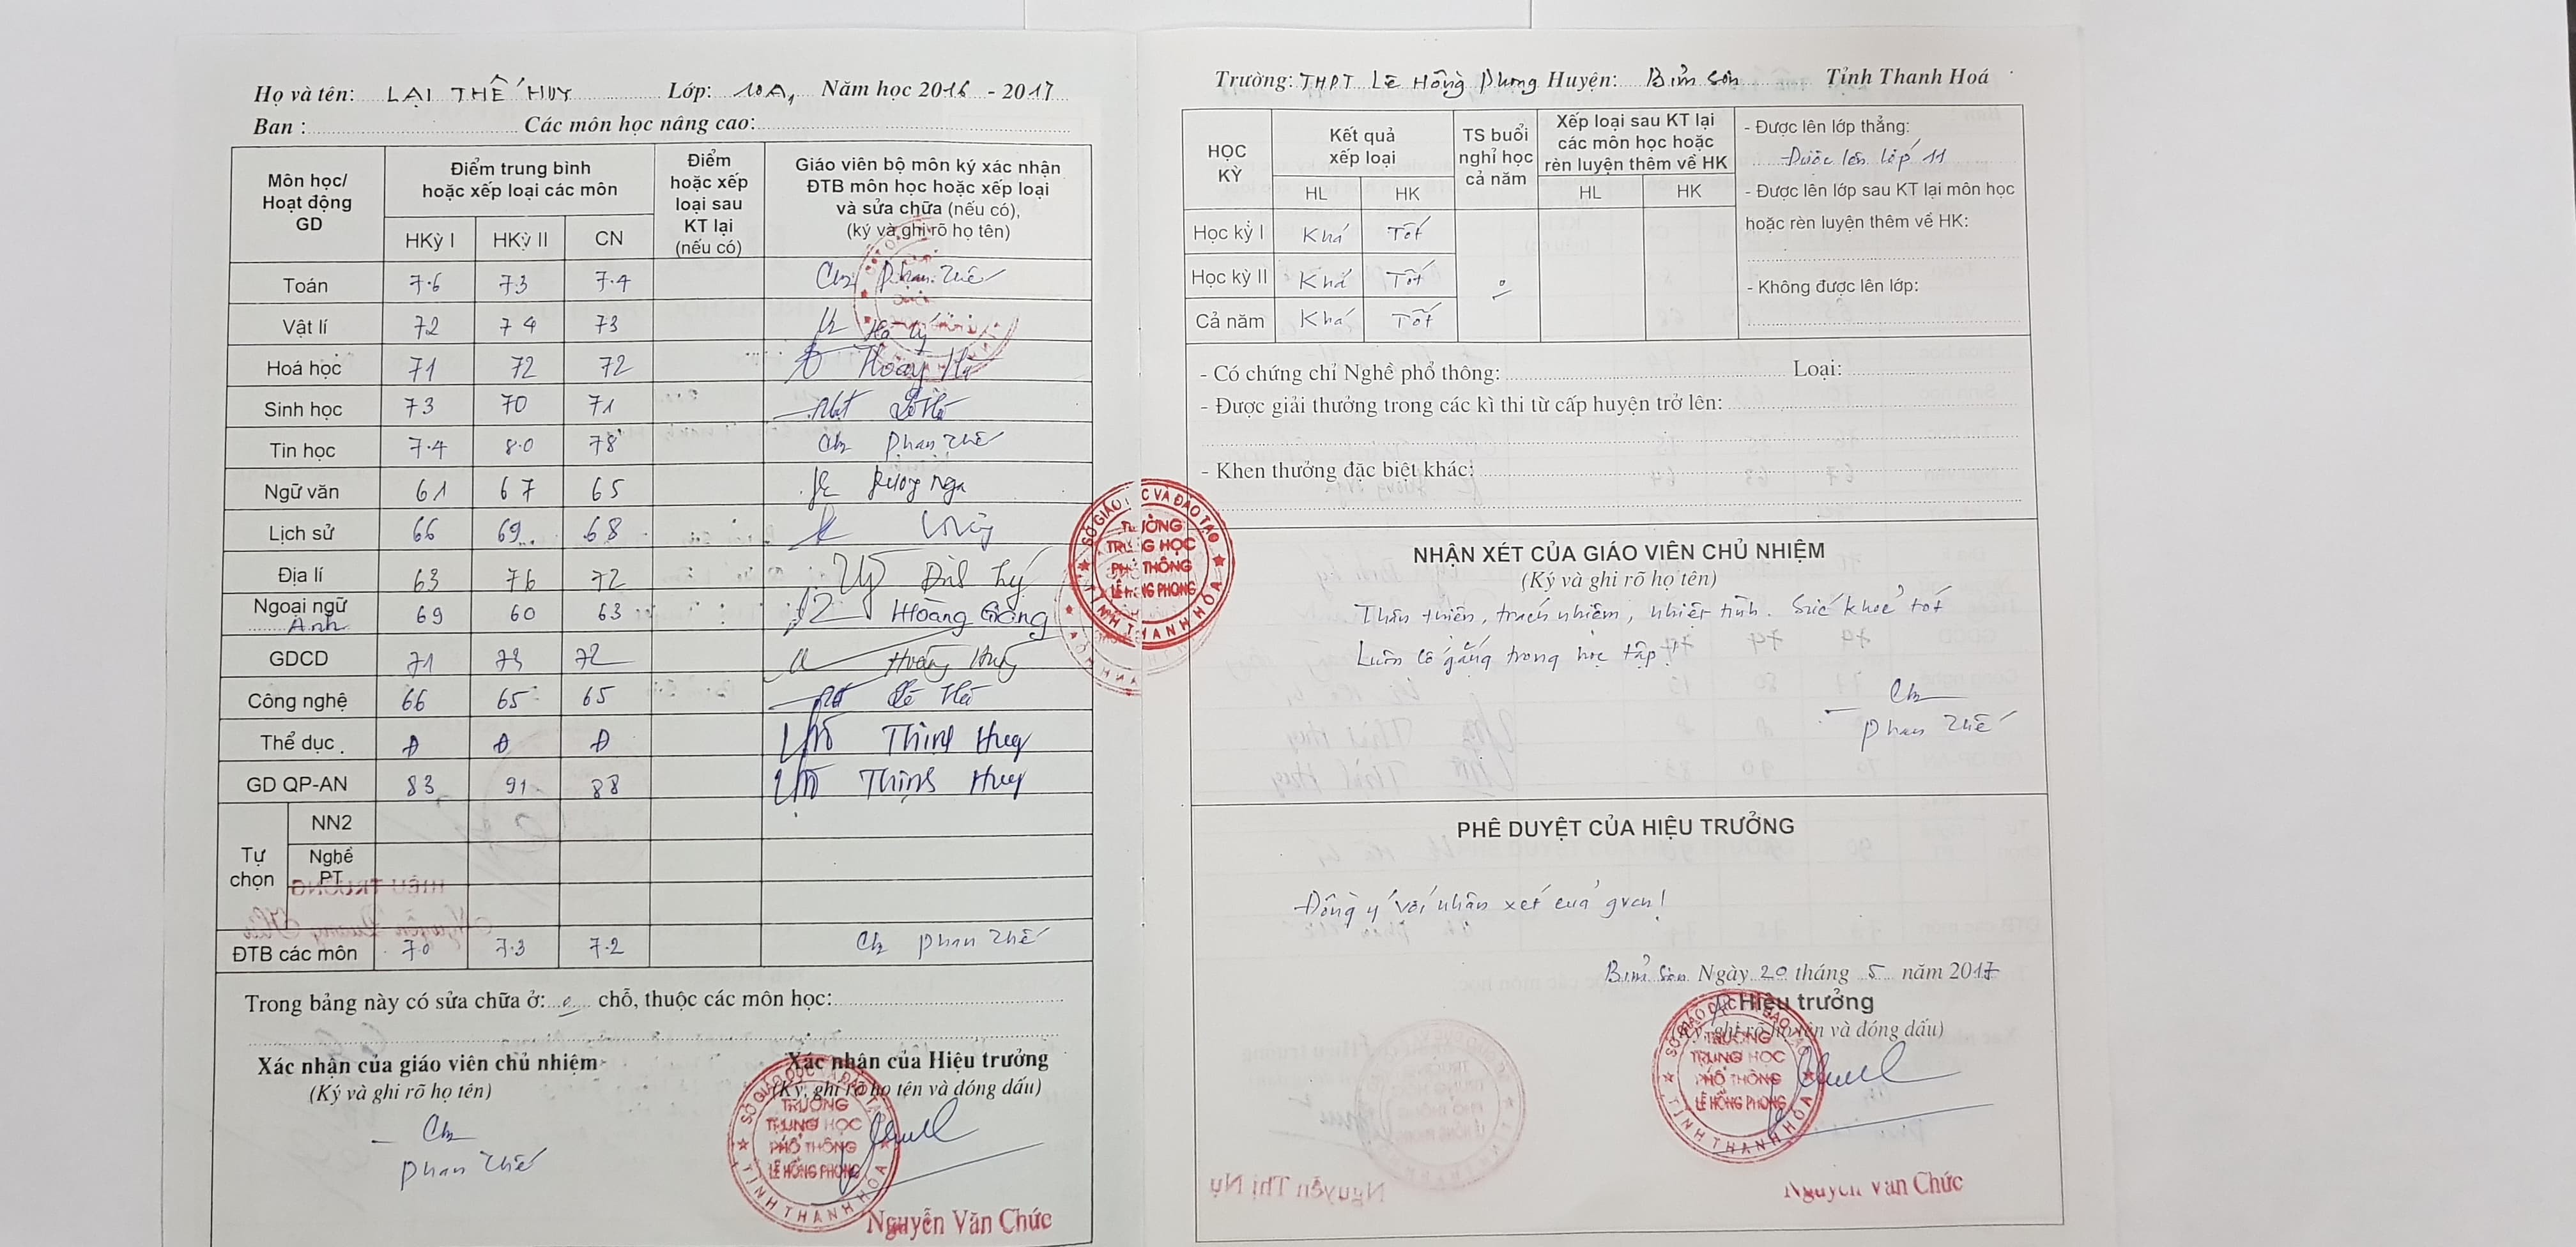 Họ và tên: LẠI THẾ HUY Lớp: 10A1 Năm học 2016 - 2017
Ban : Các môn học nâng cao:
Môn học/ Hoạt động GD
Điểm trung bình hoặc xếp loại các môn
Điểm hoặc xếp loại sau KT lại (nếu có)
Giáo viên bộ môn ký xác nhận ĐTB môn học hoặc xếp loại và sửa chữa (nếu có), (ký và ghi rõ họ tên)
HKỳ I HKỳ II CN
Toán 7.6 7.3 7.4 Phan Thế
Vật lí 72 74 73
Hoá học 71 72 72
Sinh học 73 70 71 Lê Hà
Tin học 7.4 8.0 78 Phan Thế
Ngữ văn 61 67 65 Nga
Lịch sử 66 69 68
Địa lí 63 76 72
Ngoại ngữ Anh 69 60 63 Hoàng Giang
GDCD 71 73 72 Hoàng
Công nghệ 66 65 65 Lê Hà
Thể dục Đ Đ Đ Thịnh Huy
GD QP-AN 83 91 88 Thịnh Huy
Tự chọn
NN2
Nghề PT
ĐTB các môn 7.0 7.3 7.2 Phan Thế
Trong bảng này có sửa chữa ở: 0 chỗ, thuộc các môn học:
Xác nhận của giáo viên chủ nhiệm
(Ký và ghi rõ họ tên)
Phan Thế
Xác nhận của Hiệu trưởng
(Ký, ghi rõ họ tên và đóng dấu)
SỞ GIÁO DỤC VÀ ĐÀO TẠO
TRƯỜNG
TRUNG HỌC
PHỔ THÔNG
LÊ HỒNG PHONG
TỈNH THANH HÓA
Nguyễn Văn Chức
Trường: THPT Lê Hồng Phong Huyện: Bỉm Sơn Tỉnh Thanh Hoá
HỌC KỲ
Kết quả xếp loại
TS buổi nghỉ học cả năm
Xếp loại sau KT lại các môn học hoặc rèn luyện thêm về HK
HL HK HL HK
Học kỳ I Khá Tốt
Học kỳ II Khá Tốt 0
Cả năm Khá Tốt
- Được lên lớp thẳng:
Được lên lớp 11
- Được lên lớp sau KT lại môn học
hoặc rèn luyện thêm về HK:
- Không được lên lớp:
- Có chứng chỉ Nghề phổ thông: Loại:
- Được giải thưởng trong các kì thi từ cấp huyện trở lên:
- Khen thưởng đặc biệt khác:
SỞ GIÁO DỤC VÀ ĐÀO TẠO
TRƯỜNG
TRUNG HỌC
PHỔ THÔNG
LÊ HỒNG PHONG
TỈNH THANH HÓA
NHẬN XÉT CỦA GIÁO VIÊN CHỦ NHIỆM
(Ký và ghi rõ họ tên)
Thân thiện, trách nhiệm, nhiệt tình. Sức khoẻ tốt
Luôn cố gắng trong học tập!
Phan Thế
PHÊ DUYỆT CỦA HIỆU TRƯỞNG
Đồng ý với nhận xét của gvcn!
Bỉm Sơn Ngày 20 tháng 5 năm 2017
Hiệu trưởng
(Ký, ghi rõ họ tên và đóng dấu)
SỞ GIÁO DỤC VÀ ĐÀO TẠO
TRƯỜNG
TRUNG HỌC
PHỔ THÔNG
LÊ HỒNG PHONG
TỈNH THANH HÓA
Nguyễn Văn Chức